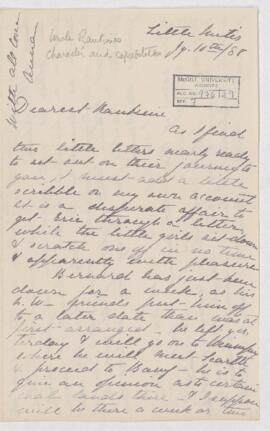 Little Metis
Jy. 10th/88
Uncle Rankine's
character and capabilities
With all love
Anna
McGILL UNIVERSITY
ARCHIVES
ACC. NO.
REF.
Dearest Rankine
As I find
this little letters nearly ready
to set out on their journey to
you, I must add a little
scribble on my own account
It is a desperate affair to
get Eric through a letter,
while the little girls sit down
& scratch one off in no time
& apparently with pleasure
Bernard has just been
down for a week, as his
N.W. friends put him off
to a later date than was at
first arranged. He left yes
terday & will go on to Winnipeg
where he will meet
& proceed to Banff - he is to
give an opinion as to certain
coal lands there - & I suppose
will be there a week or two